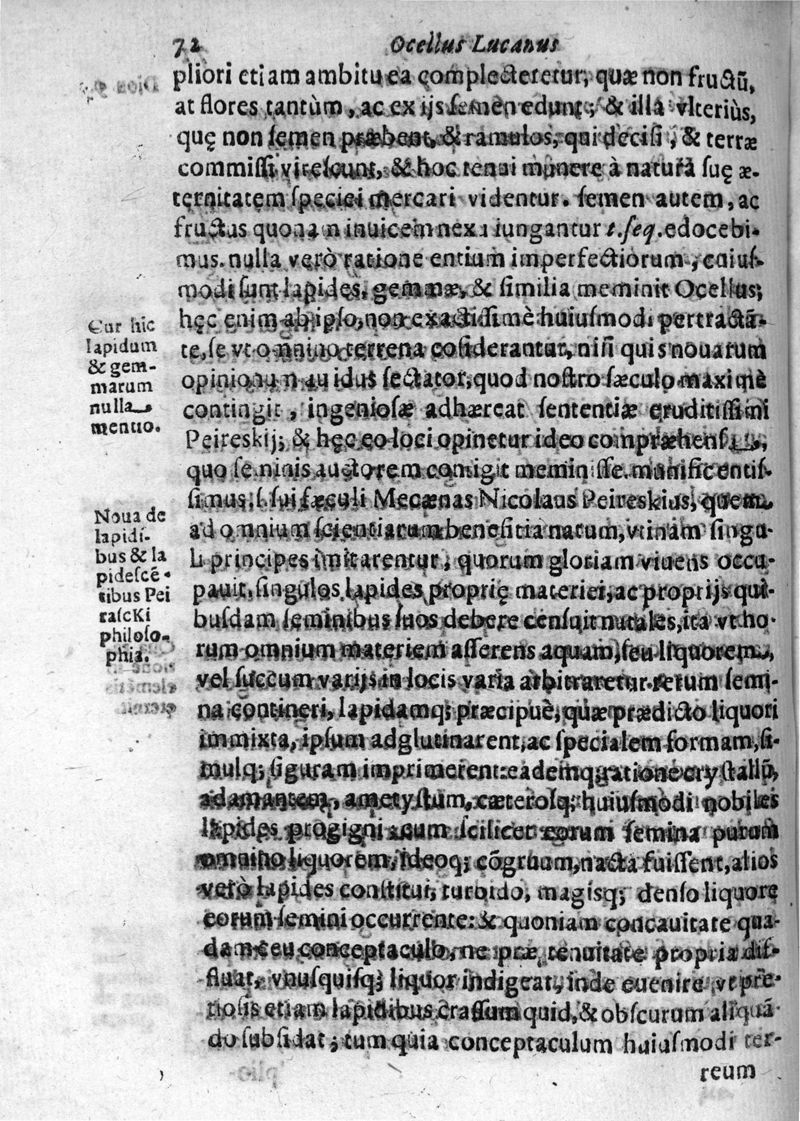 72 Ocellus Lucanus
pliori etiam ambitu ea complecteretur, quæ non fructũ,
at flores tantùm, ac ex ijs semen edunt; & illa vlteriùs,
quę non semen præbent, & ramulos, qui decisi, & terræ
commissi virescunt, & hoc tenui munere à natura suę æ-
ternitatem speciei mercari videntur. semen autem, ac
fructus quona n inuicem nexu iungantur t. seq. edocebi-
mus. nulla verò ratione entium imperfectiorum, cuius-
modi sunt lapides, gemmæ, & similia meminit Ocellus;
hęc enim ab ipso, non exactissimè huiusmodi pertractã-
te, se vt omnino terrena cõsiderantur, nisi quis nouarum
opinionu n auidus sectator, quod nostro sæculo maximè
contingit, ingeniosæ adhæreat sententiæ eruditissimi
Peireskij; & hęc eo loci opinetur ideo compræhensa,
quo seminis auctorem contigit meminisse. munificentis-
simus, s. sui sæculi Mecænas Nicolaus Peireskius, quem
ad omnium scientiarum beneficia natum, vtinam singu-
li principes imitarentur, quorum gloriam viuens occu-
pauit, singulos lapides proprię materiei, ac proprijs qui-
busdam seminibus suos debere censuit natales, ita vt ho-
rum omnium materiem asserens aquam, seu liquorem,
vel succum varijs in locis varia arbitraretur rerum semi-
na contineri, lapidumq; præcipuè, quæ prædicto liquori
immixta, ipsum adglutinarent, ac specialem formam, si-
mulq; figuram imprimerent: eademq; ratione crystallũ,
adamantem, ametystum, cæterosq; huiusmodi nobiles
lapides progigni cum scilicet eorum semina purum
omnino liquorem, ideoq; cõgruum, nacta fuissent, alios
verò lapides constitui, turbido, magisq; denso liquore
eorum semini occurrente: & quoniam concauitate qua-
dam ceu conceptaculo, ne præ tenuitate propria dif-
fluat, vnusquisq; liquor indigeat, inde euenire vt prę-
tiosis etiam lapidibus crassum quid, & obscurum aliquã
do subsidat; tum quia conceptaculum huiusmodi ter-
reum
Cur hic
lapidum
& gem-
marum
nulla
mentio.
Noua de
lapidi-
bus & la
pidescẽ-
tibus Pei
rascKi
philoso-
phia.